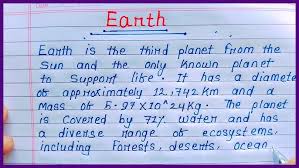 Earth
Earth is the third planet from the
Sun and the only known planet
to support life. It has a diamete
of approximately 12,742 km and a
Mass of 5.97x10^24kg. The planet
is covered by 71% water and has
a diverse range of ecosystems,
including Forests, deserts, ocean